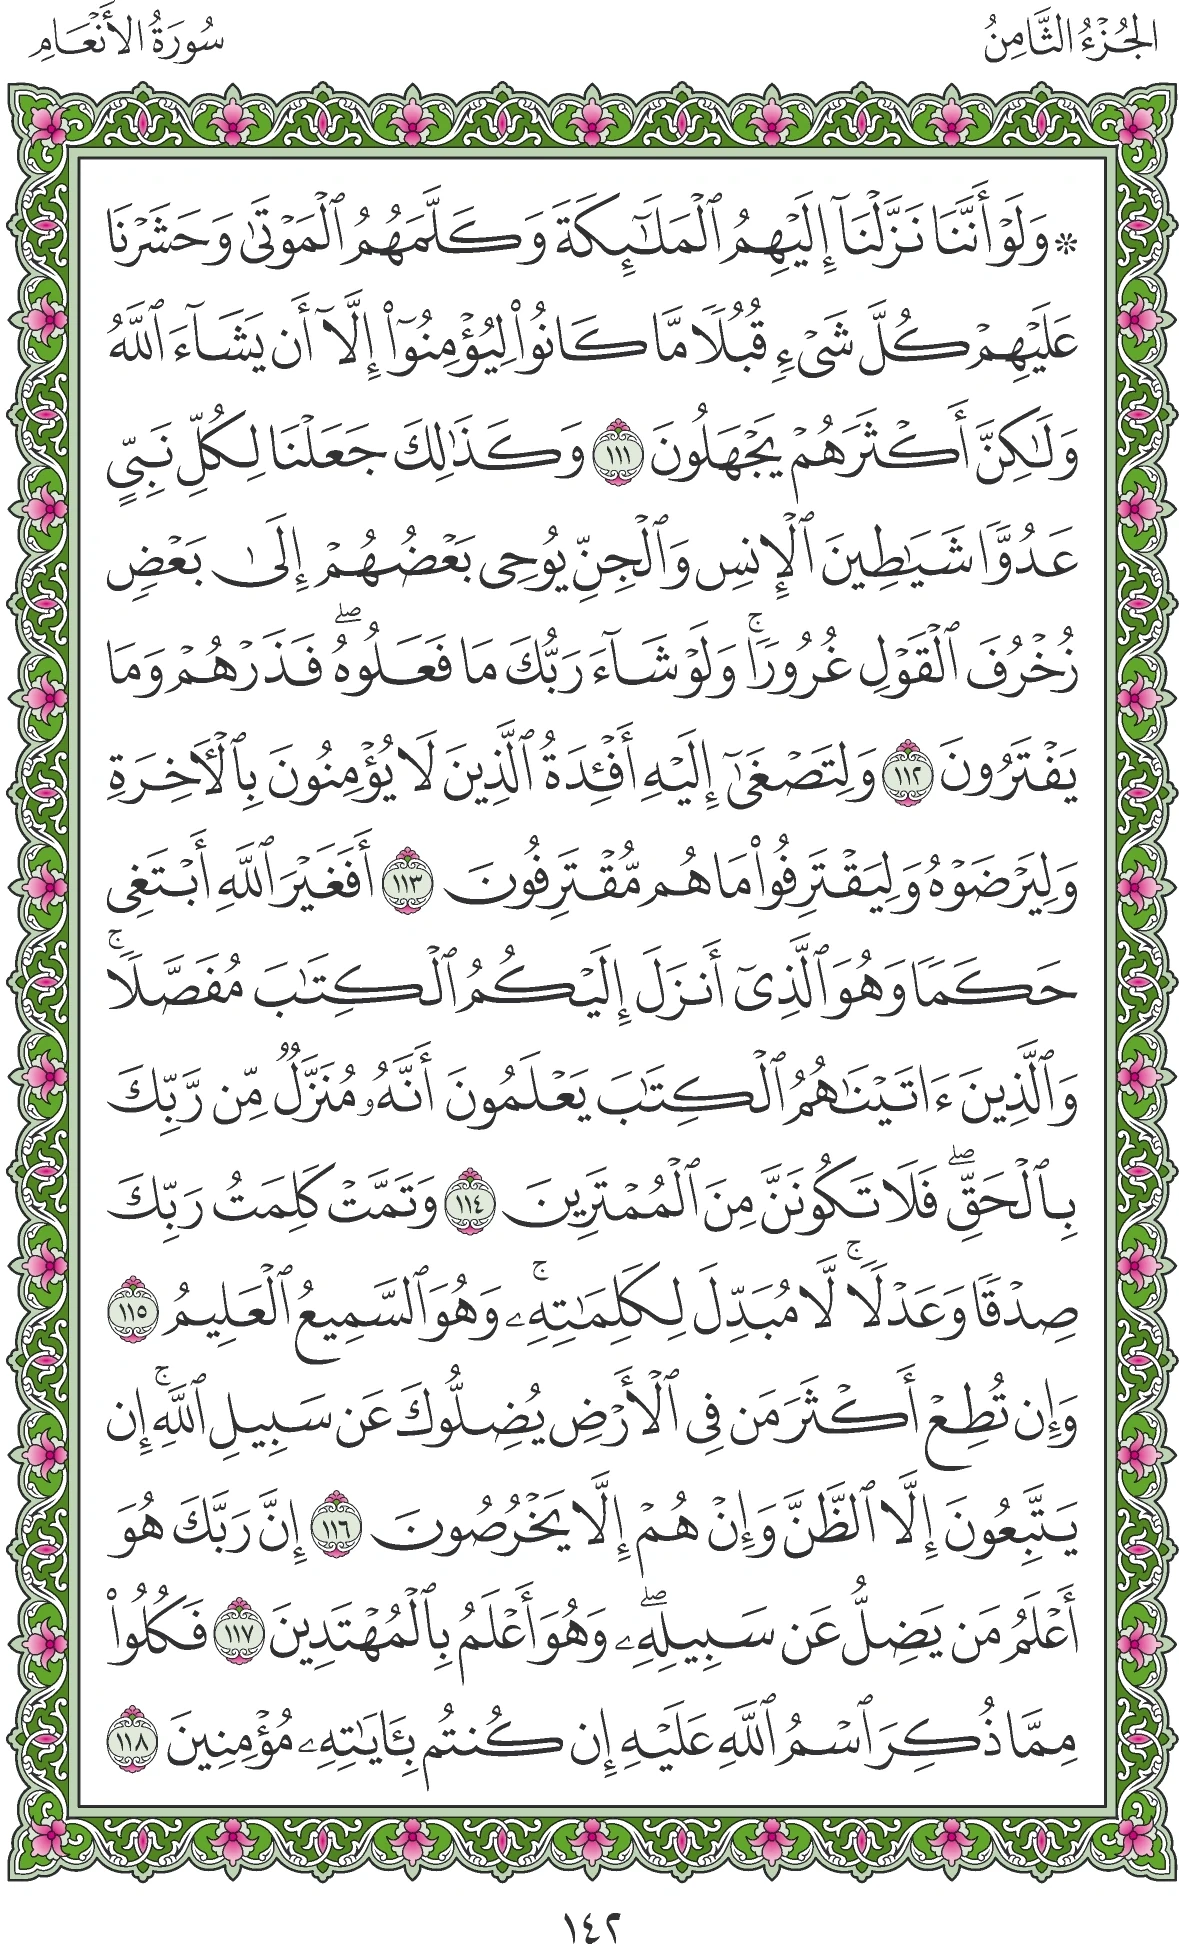 الجُزْءُ الثَّامِنُ
سُورَةُ الأَنْعَامِ
۞ وَلَوْ أَنَّنَا نَزَّلْنَآ إِلَيْهِمُ ٱلْمَلَـٰٓئِكَةَ وَكَلَّمَهُمُ ٱلْمَوْتَىٰ وَحَشَرْنَا
عَلَيْهِمْ كُلَّ شَىْءٍ قُبُلًا مَّا كَانُوا۟ لِيُؤْمِنُوٓا۟ إِلَّآ أَن يَشَآءَ ٱللَّهُ
وَلَـٰكِنَّ أَكْثَرَهُمْ يَجْهَلُونَ ١١١ وَكَذَٰلِكَ جَعَلْنَا لِكُلِّ نَبِىٍّ
عَدُوًّا شَيَـٰطِينَ ٱلْإِنسِ وَٱلْجِنِّ يُوحِى بَعْضُهُمْ إِلَىٰ بَعْضٍ
زُخْرُفَ ٱلْقَوْلِ غُرُورًا ۚ وَلَوْ شَآءَ رَبُّكَ مَا فَعَلُوهُ ۖ فَذَرْهُمْ وَمَا
يَفْتَرُونَ ١١٢ وَلِتَصْغَىٰٓ إِلَيْهِ أَفْـِٔدَةُ ٱلَّذِينَ لَا يُؤْمِنُونَ بِٱلْـَٔاخِرَةِ
وَلِيَرْضَوْهُ وَلِيَقْتَرِفُوا۟ مَا هُم مُّقْتَرِفُونَ ١١٣ أَفَغَيْرَ ٱللَّهِ أَبْتَغِى
حَكَمًا وَهُوَ ٱلَّذِىٓ أَنزَلَ إِلَيْكُمُ ٱلْكِتَـٰبَ مُفَصَّلًا ۚ
وَٱلَّذِينَ ءَاتَيْنَـٰهُمُ ٱلْكِتَـٰبَ يَعْلَمُونَ أَنَّهُۥ مُنَزَّلٌ مِّن رَّبِّكَ
بِٱلْحَقِّ ۖ فَلَا تَكُونَنَّ مِنَ ٱلْمُمْتَرِينَ ١١٤ وَتَمَّتْ كَلِمَتُ رَبِّكَ
صِدْقًا وَعَدْلًا ۚ لَّا مُبَدِّلَ لِكَلِمَـٰتِهِۦ ۚ وَهُوَ ٱلسَّمِيعُ ٱلْعَلِيمُ ١١٥
وَإِن تُطِعْ أَكْثَرَ مَن فِى ٱلْأَرْضِ يُضِلُّوكَ عَن سَبِيلِ ٱللَّهِ ۚ إِن
يَتَّبِعُونَ إِلَّا ٱلظَّنَّ وَإِنْ هُمْ إِلَّا يَخْرُصُونَ ١١٦ إِنَّ رَبَّكَ هُوَ
أَعْلَمُ مَن يَضِلُّ عَن سَبِيلِهِۦ ۖ وَهُوَ أَعْلَمُ بِٱلْمُهْتَدِينَ ١١٧ فَكُلُوا۟
مِمَّا ذُكِرَ ٱسْمُ ٱللَّهِ عَلَيْهِ إِن كُنتُم بِـَٔايَـٰتِهِۦ مُؤْمِنِينَ ١١٨
١٤٢